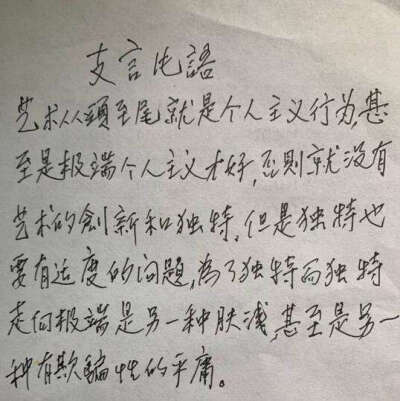 支言屯語
艺术从頭至尾就是个人主义行为,甚
至是极端个人主义才好,否則就没有
艺术的創新和独特,但是独特也
要有适度的问题,為了独特而独特
走向极端是另一种肤浅,甚至是另一
种有欺騙性的平庸。